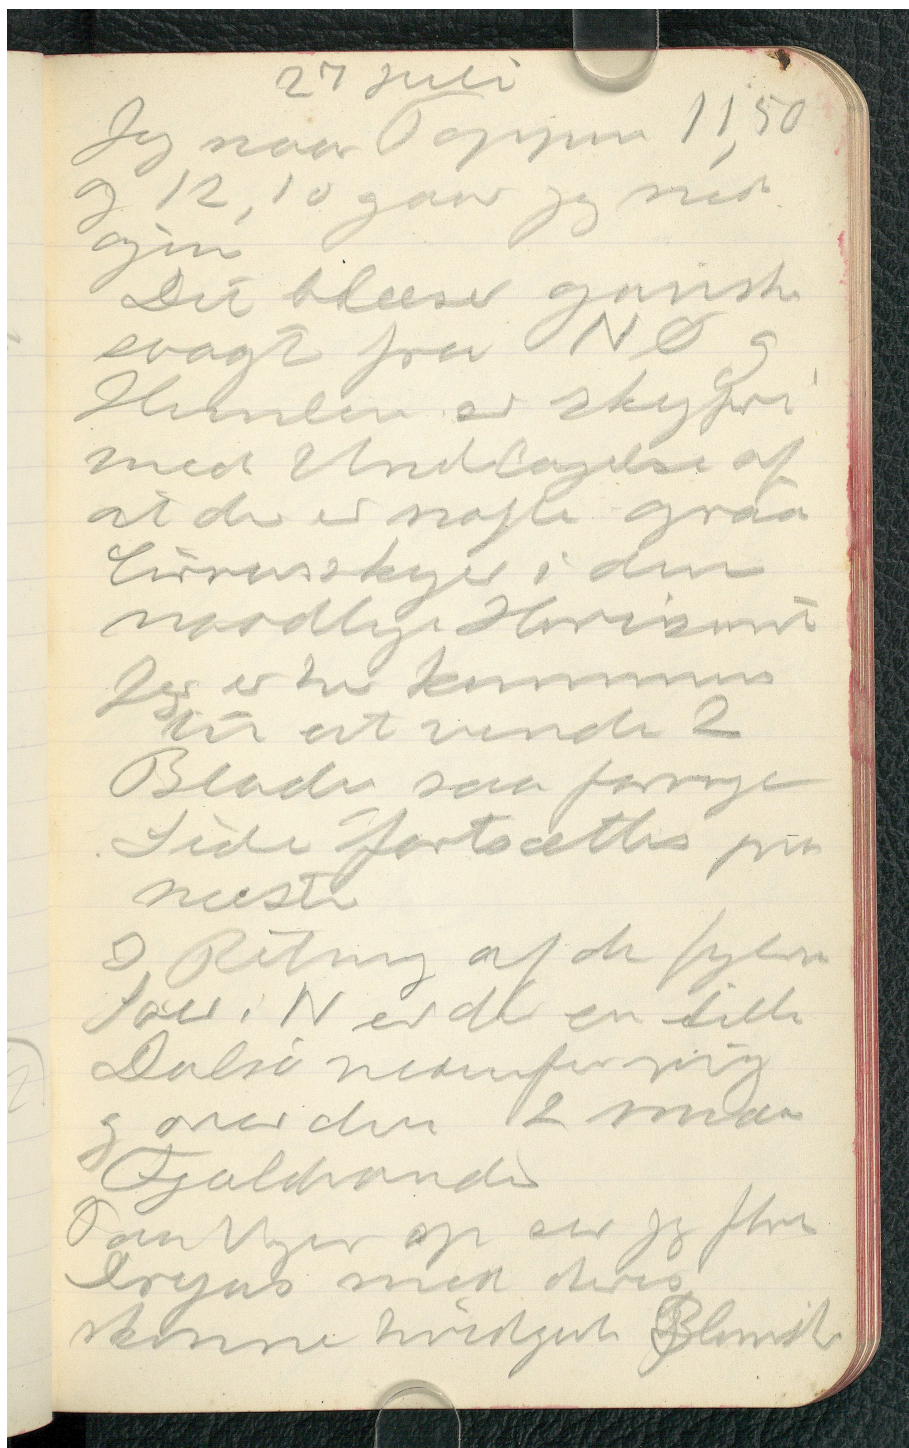 27 Juli
Jeg naar Toppen 11,50
og 12,10 gaar jeg ned
igen
Det blæser ganske
svagt fra NØ og
Himlen er skyfri
med Undtagelse af
at der er nogle graa
Cirrusskyer i den
nordlige Horisont
Jeg er her kommen
til at vende 2
Blade saa forrige
Side fortsættes paa
næste
I Retning af de
i N er der en lille
Dalsø nedenfor mig
og over den 2 smaa
Fjeldvande
Paa Vejen op ser jeg flere
Dryas med deres
skønne hvidgule Blomster